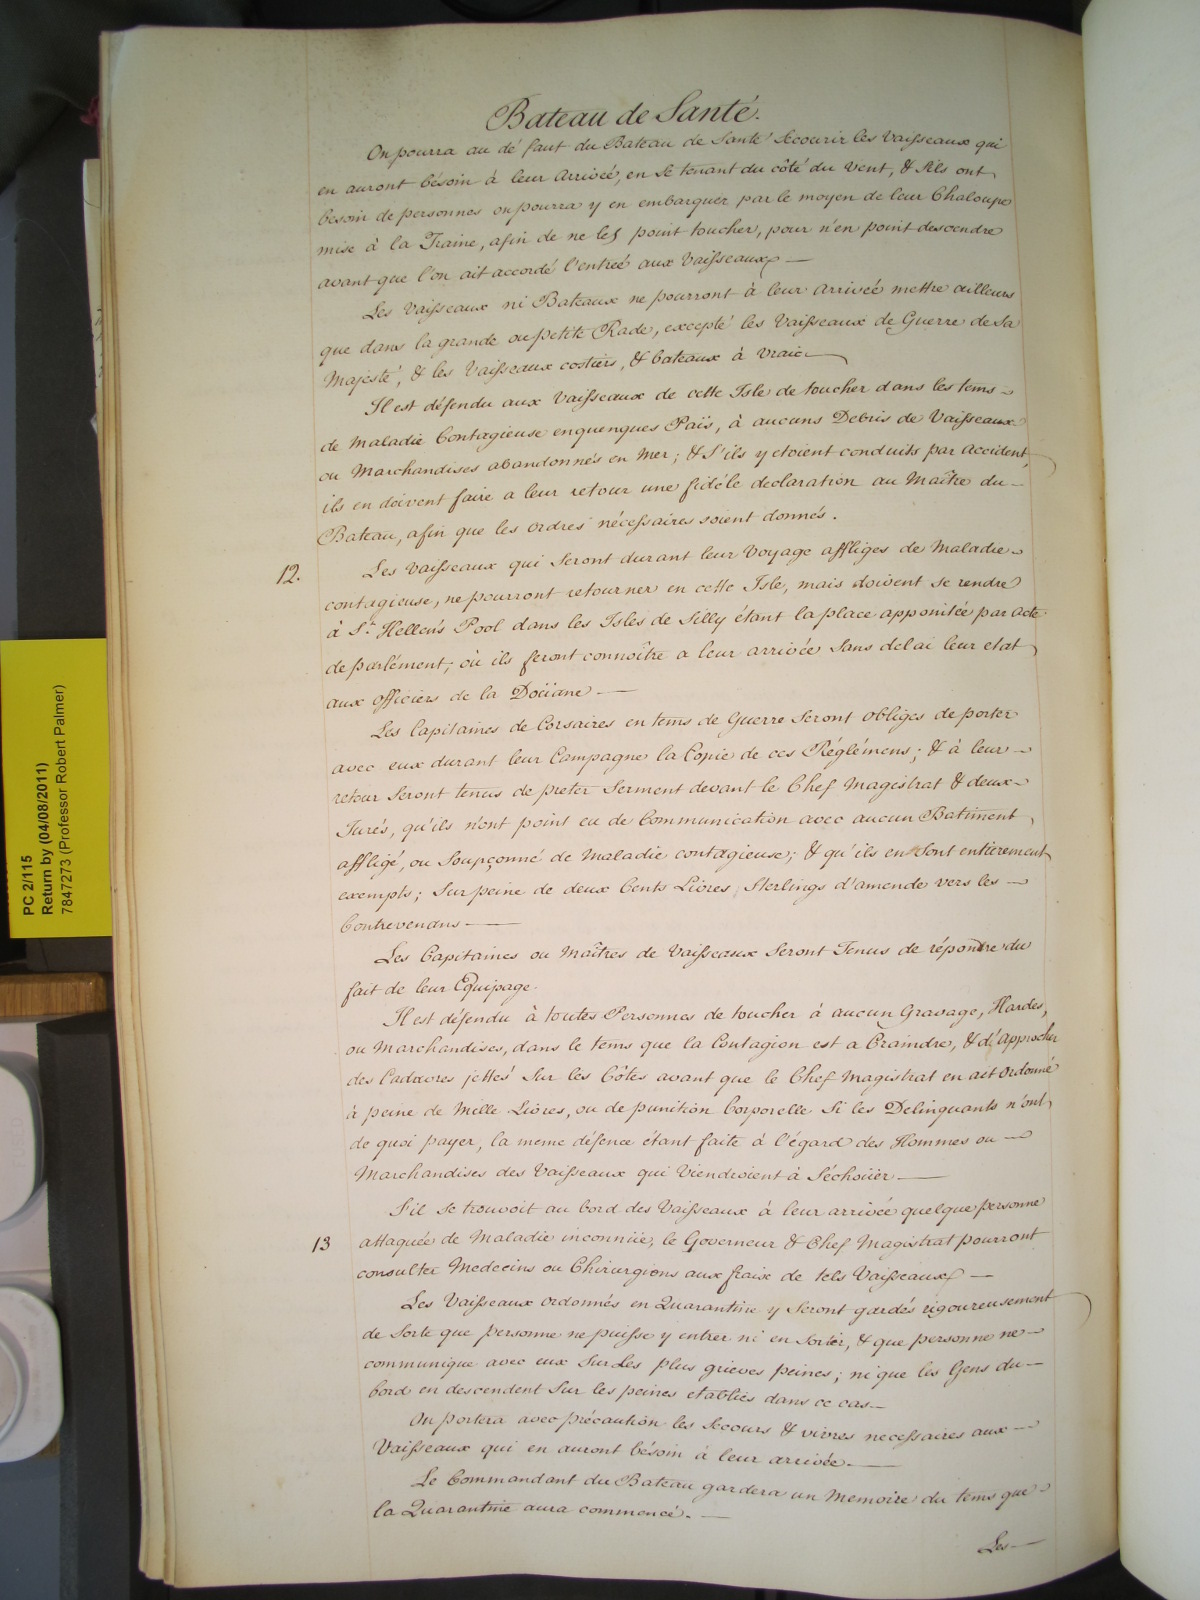 Bateau de Santé.
On pourra au dé faut du Bateau de Santé Secourir les Vaisseaux qui
en auront bésoin à leur Arriveé, en se tenant du côté du Vent, & S'ils ont
besoin de personnes on pourra y en embarquer par le moyen de leur Chaloupe
mise à la Traine, afin de ne les point toucher, pour n'en point descendre
avant que l'on ait accordé l'entreé aux Vaisseaux —
Les Vaisseaux ni Bateaux ne pourront à leur arriveé mettre ailleurs
que dans la grande ou petite Rade, excepté les Vaisseaux de Guerre de Sa
Majesté, & les Vaisseaux costiers, & bateaux à Vraic —
Il est défendu aux Vaisseaux de cette Isle de toucher dans les tems
de Maladie Contagieuse en quenques Païs, à aucuns Debris de Vaisseaux
ou Marchandises abandonnés en Mer; & S'ils y etoient conduits par Accident,
ils en doivent faire a leur retour une fidéle declaration au Maître du —
Bateau, afin que les ordres nécessaires soient donnés.
12. Les Vaisseaux qui Seront durant leur Voyage affliges de Maladie
contagieuse, ne pourront retourner en cette Isle, mais doivent se rendre
à St. Hellen's Pool dans les Isles de Silly étant la place apponitée par acte
de parlément, où ils feront connoître a leur arriveé Sans delai leur etat
aux officiers de la Doüane —
Les Capitaines de Corsaires en tems de Guerre Seront obliges de porter
avec eux durant leur Campagne la Copie de ces Réglémens; & à leur —
retour Seront tenus de preter Serment devant le Chef Magistrat & deux —
Jurés, qu'ils n'ont point eu de Communication avec aucun Batiment
affligé, ou Soupçonné de Maladie contagieuse; & qu'ils en Sont entierement
exempts; Sur peine de deux Cents Livres Sterlings d'amende vers les —
Contrevenans —
Les Capitaines ou Maîtres de Vaisseaux Seront Tenus de répondre du
fait de leur Equipage.
Il est défendu à toutes Personnes de toucher à aucun Gravage, Hardes,
ou Marchandises, dans le tems que la Contagion est a Craindre, & d'Approcher
des Cadavres jettés Sur les Côtes avant que le Chef Magistrat en ait Ordonné
à peine de Mille Livres, ou de punition Corporelle Si les Delinquants n'ont
de quoi payer, la meme défence étant faite à l'égard des Hommes ou —
Marchandises des Vaisseaux qui Viendroient à S'échoüer —
S'il Se trouvoit au bord des Vaisseaux à leur arriveé quelque personne
13 attaquée de Maladie inconnüe, le Governeur & Chef Magistrat pourront
consulter Medecins ou Chirurgions aux fraix de tels Vaisseaux —
Les Vaisseaux ordonnés en Quarantine y Seront gardés rigoureusement
de Sorte que personne ne puisse y entrer ni en Sortir, & que personne ne —
communique avec eux Sur Les plus grieves peines; ni que les Gens du —
bord en descendent Sur les peines etablies dans ce cas —
On portera avec précaution les Secours & vivres necessaires aux —
Vaisseaux qui en auront bésoin à leur arrivée. —
Le Commandant du Bateau gardera un Memoire du tems que
la Quarantine aura commencé. —
Les —
PC 2/115
Return by (04/08/2011)
7847273 (Professor Robert Palmer)